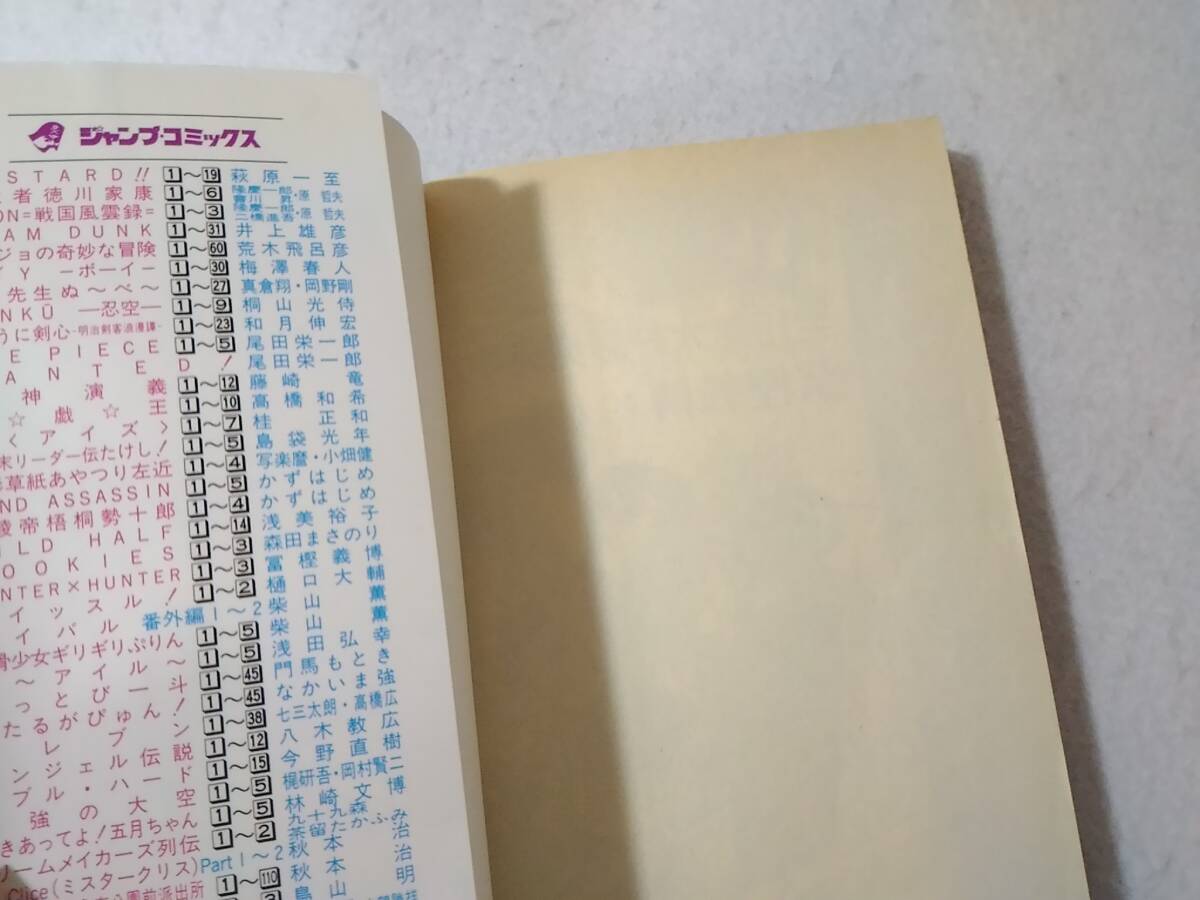 ジャンプ・コミックス
STARD!! 1〜19 萩原一至
者徳川家康 1〜6 隆慶一郎・會川昇・原哲夫
ON=戦国風雲録= 1〜3 隆慶一郎・二橋進吾・原哲夫
AM DUNK 1〜31 井上雄彦
ジョの奇妙な冒険 1〜60 荒木飛呂彦
Y －ボーイ－ 1〜30 梅澤春人
先生ぬ〜べ〜 1〜27 真倉翔・岡野剛
NKŪ ―忍空― 1〜9 桐山光侍
うに剣心-明治剣客浪漫譚- 1〜23 和月伸宏
E PIECE 1〜5 尾田栄一郎
ANTED! 尾田栄一郎
神演義 1〜12 藤崎竜
☆戯☆王 1〜10 高橋和希
〈アイズ〉 1〜7 桂正和
末リーダー伝たけし! 1〜5 島袋光年
草紙あやつり左近 1〜4 写楽麿・小畑健
ND ASSASSIN 1〜5 かずはじめ
陵帝梧桐勢十郎 1〜4 かずはじめ
ILD HALF 1〜14 浅美裕子
OOKIES 1〜3 森田まさのり
NTER×HUNTER 1〜3 冨樫義博
イッスル! 1〜2 樋口大輔
イバル 番外編1〜2 柴山薫
骨少女ギリギリぷりん 1〜5 柴山薫
〜アイル〜 1〜5 浅田弘幸
っとび一斗 1〜45 門馬もとき
たるがぴゅん! 1〜45 なかいま強
レブン 1〜38 七三太朗・高橋広
ンジェル伝説 1〜12 八木教広
ブル・ハード 1〜15 今野直樹
強の大空 1〜5 梶研吾・岡村賢二
きあってよ!五月ちゃん 1〜5 林崎文博
リームメイカーズ列伝 1〜2 九十九森・茶留たかふみ
Clice(ミスタークリス) Part1〜2 秋本治
公園前派出所 1〜110 秋本治
鳥山明